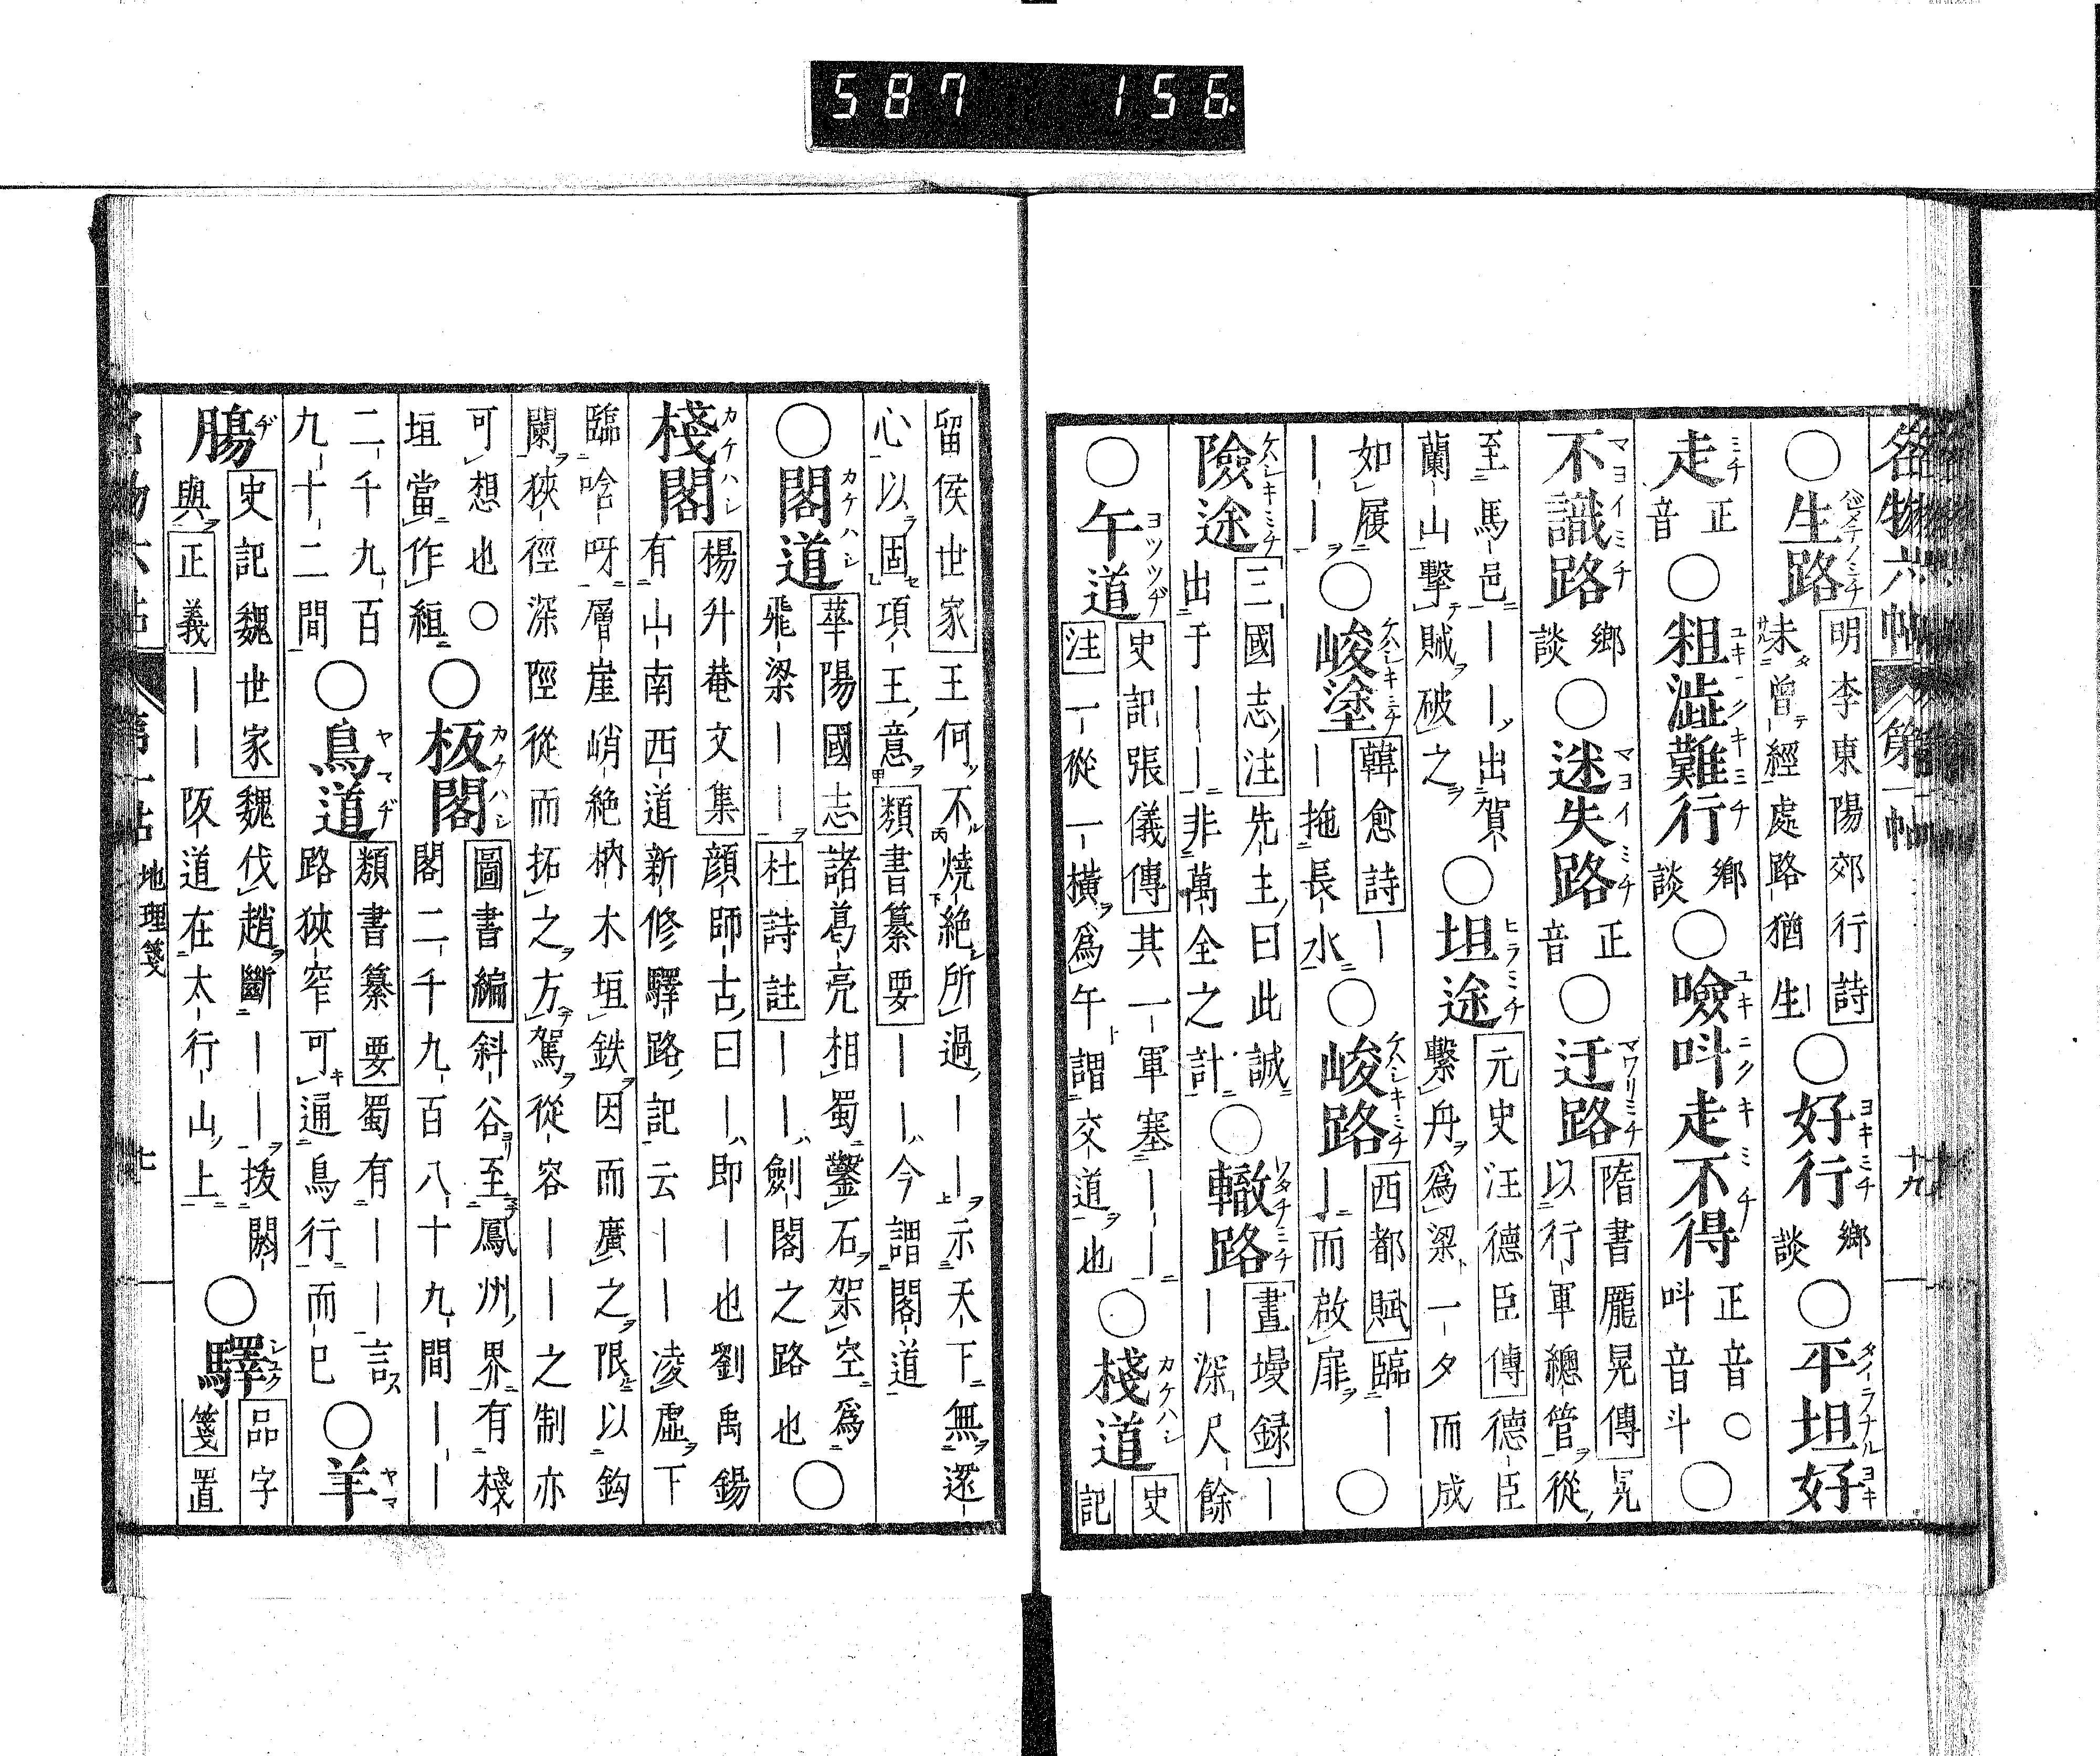 587 156
名物六帖 第一帖 十九
○生路 明李東陽郊行詩 未曾經處路猶生 ○好行 鄉談 ○平坦好
走 正音 ○粗澁難行 鄉談 ○嶮呌走不得 正音○呌音斗 ○
不識路 鄉談 ○迷失路 正音 ○迂路 隋書龎晃傳 晃以行軍總管從
至馬邑――出賀蘭山擊賊破之 ○坦途 元史汪德臣傳 德臣繫舟爲梁一夕而成
如履―― ○峻塗 韓愈詩 ――拖長水 ○峻路 西都賦 臨―――而啟扉 ○
險途 三國志注 先主曰此誠出于――非萬全之計 ○轍路 畫墁録 ――深尺餘
○午道 史記張儀傳 其一軍塞――注 一從一橫爲午謂交道也 ○棧道 史記
留侯世家 王何不燒絶所過――示天下無還心以固項王意 類書纂要 ――今謂閣道
○閣道 華陽國志 諸葛亮相蜀鑿石架空爲飛梁―― 杜詩註 ――劍閣之路也 ○
棧閣 楊升菴文集 顔師古曰――即――也劉禹錫有山南西道新修驛路記云――凌虛下
臨唅呀層崖峭絶枘木垣鉄因而廣之限以鈎闌狹徑深陘從而拓之方駕從容――之制亦
可想也○垣當作絙 ○板閣 圖書編 斜谷至鳳州界有棧閣二千九百八十九間――
二千九百九十二間 ○鳥道 類書纂要 蜀有――言路狹窄可通鳥行而已 ○羊
腸 史記魏世家 魏伐趙斷――拔閼與 正義 ――阪道在太行山上 ○驛 品字箋 置
地理箋